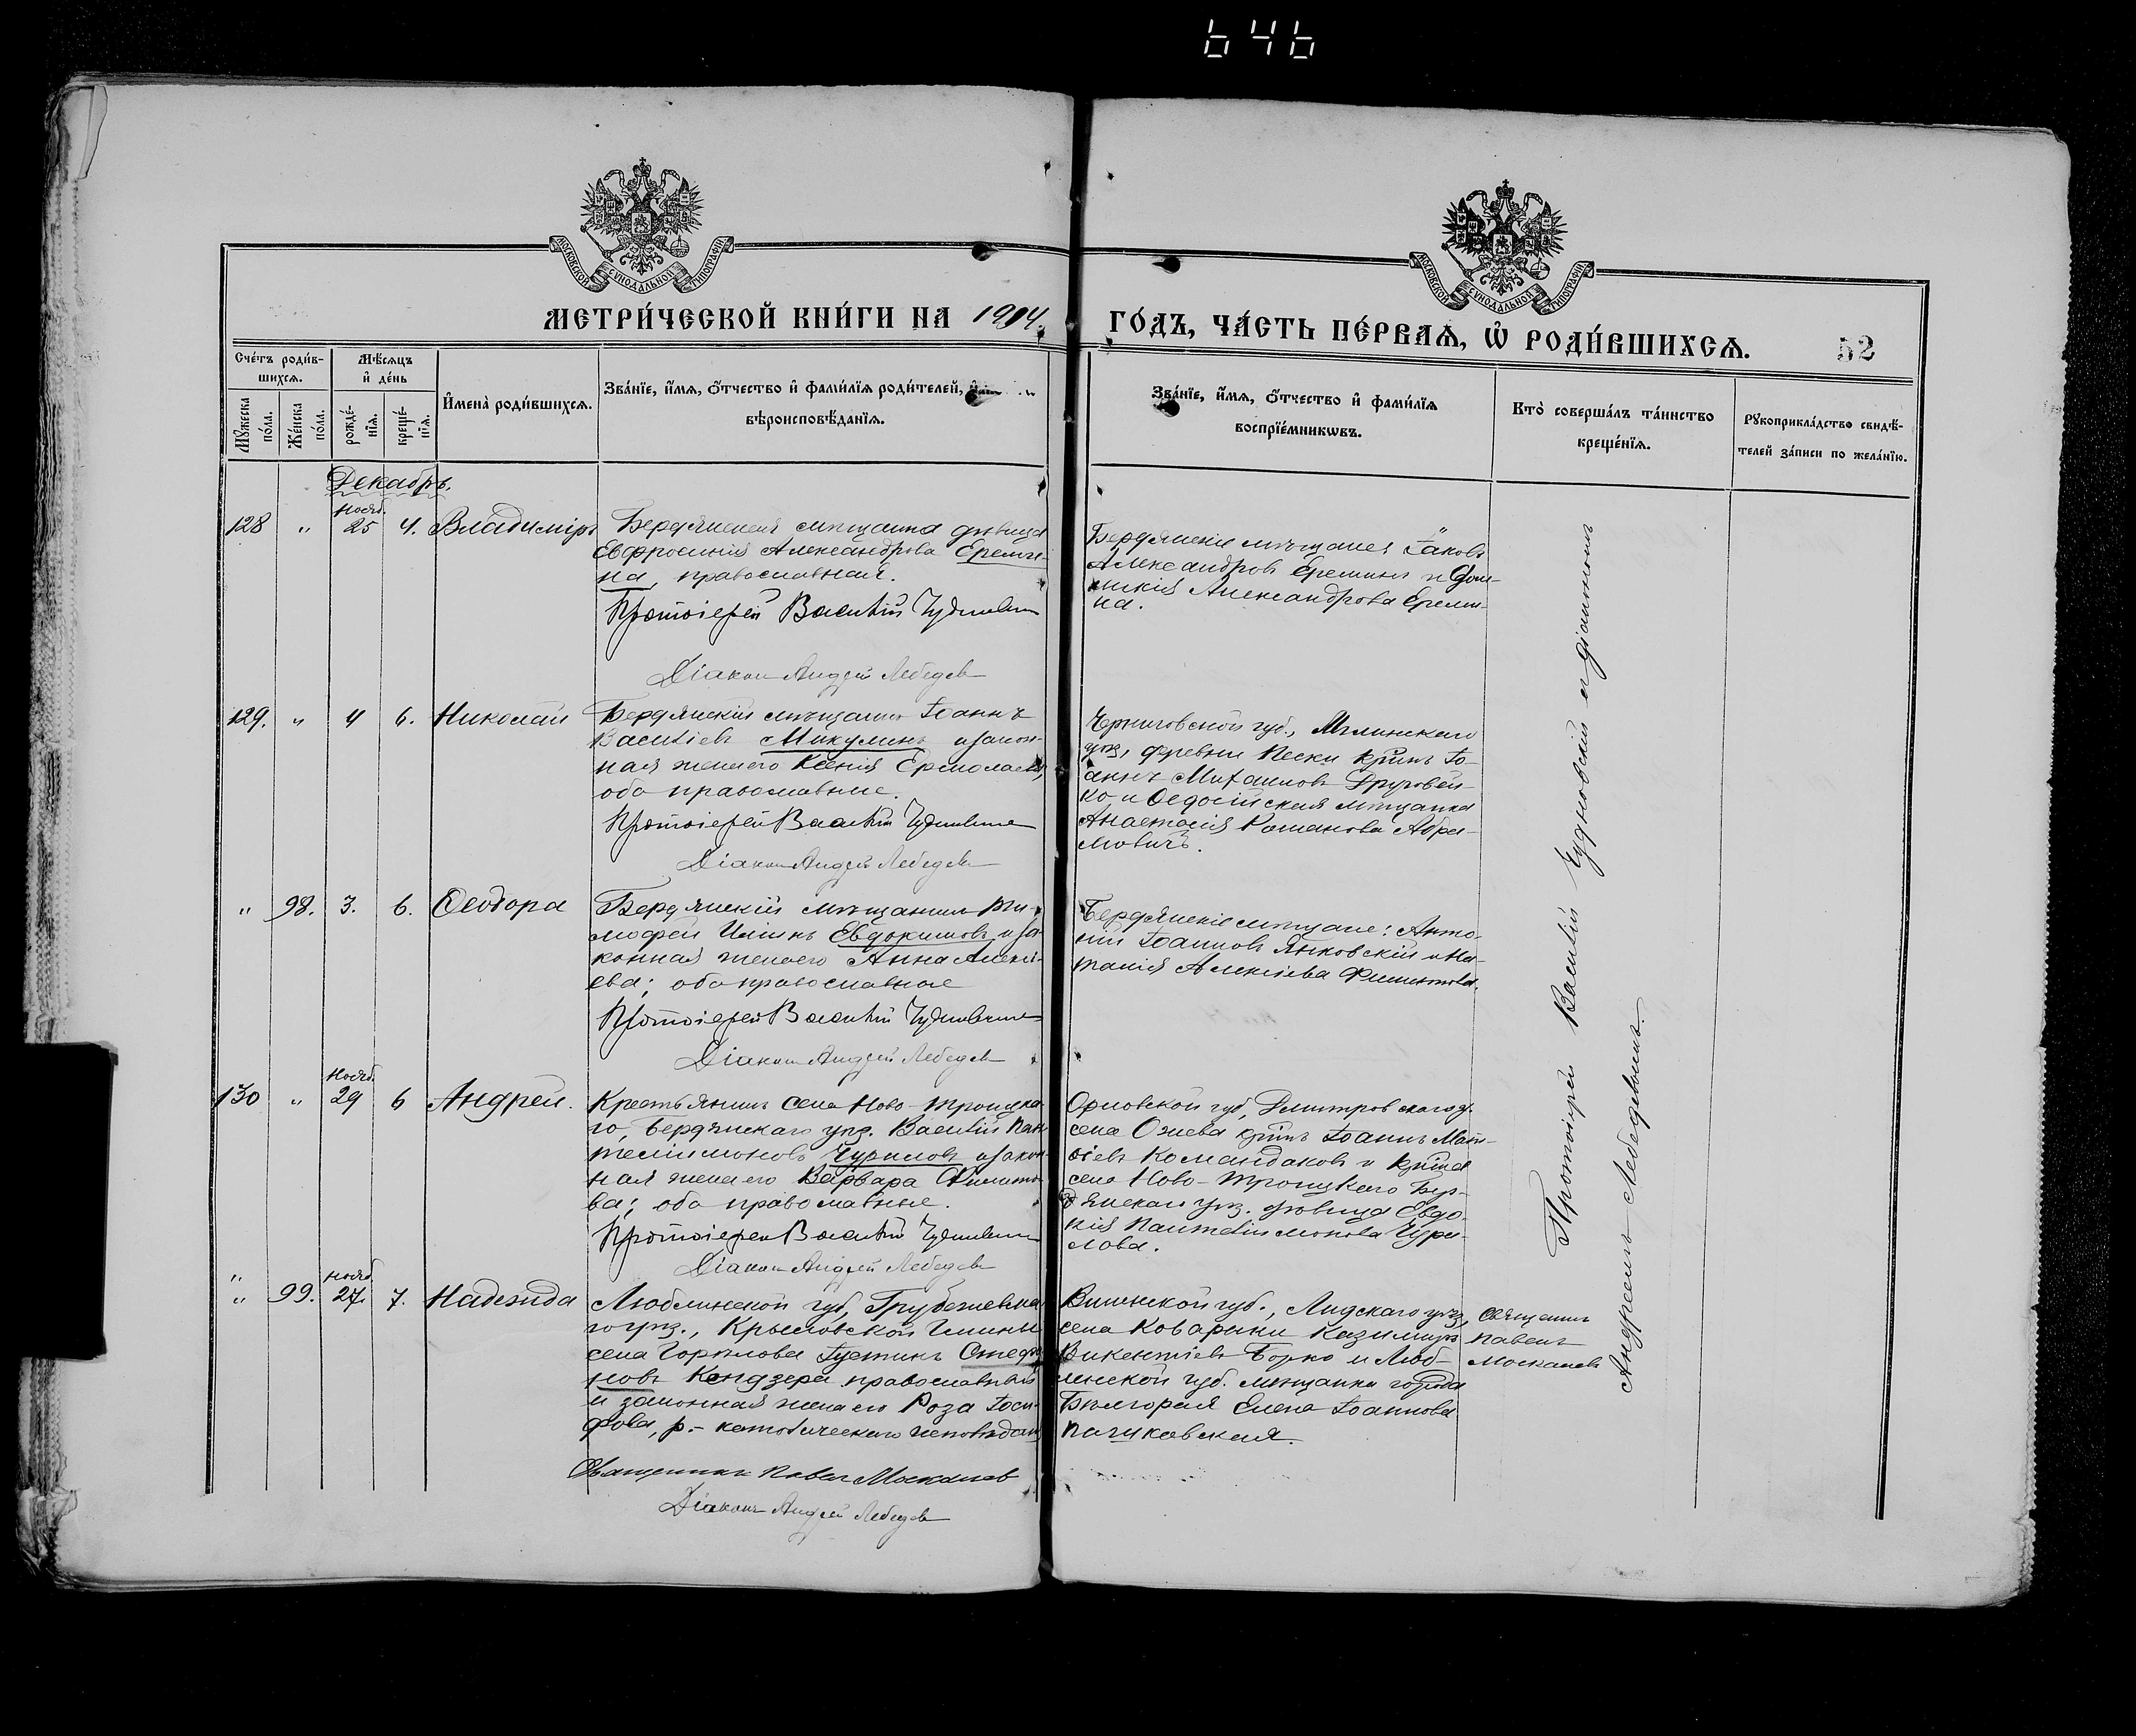 646
МОСКОВСКОЙ СѴНОДАЛЬНОЙ ТИПОГРАФІИ
МОСКОВСКОЙ СѴНОДАЛЬНОЙ ТИПОГРАФІИ
МЕТРИ́ЧЕСКОЙ КНИ́ГИ НА 1914
ГО́ДЪ, ЧА́СТЬ ПЕ́РВАѦ, Ѡ҆ РОДИ́ВШИХСѦ.
52
Сче́тъ роди́в-
шихсѧ.
Мѣ́сѧцъ
и҆ де́нь
Мꙋ́жеска
по́ла.
Же́нска
по́ла.
рожде́-
нїѧ.
креще́-
нїѧ.
И҆мена̀ роди́вшихсѧ.
Зва́нїе, и҆́мѧ, ѻ҆́тчество и҆ фами́лїѧ роди́телей, и҆
вѣроисповѣ́данїѧ.
Зва́нїе, и҆́мѧ, ѻ҆́тчество и҆ фами́лїѧ
воспрїе́мникѡвъ.
Кто̀ соверша́лъ та́инство
креще́нїѧ.
Рꙋкоприкла́дство свидѣ́-
телей за́писи по жела́нїю.
Декабрь.
128 " Нояб. 25 4. Владиміръ
Бердянская мѣщанка дѣвица
Евфросинія Александрова Ереми-
на, православная.
Протоіерей Василій Чудновскій
Діаконъ Андрей Лебедевъ
Бердянскіе мѣщане: Іаковъ
Александровъ Ереминъ и
Александрова Ереми-
на.
129. " 4 6. Николай
Бердянскій мѣщанинъ Іоаннъ
Васильевъ Микулинъ и закон-
ная жена его Ксенія Ермолаева,
оба православные.
Протоіерей Василій Чудновскій
Діаконъ Андрей Лебедевъ
Черниговской губ., Мглинскаго
уѣз, деревни Пески кр-нъ Іо-
аннъ Михаиловъ
ко и Ѳеодосійская мѣщанка
Анастасія Романова Абра-
мовичъ.
" 98. 3. 6. Ѳеодора
Бердянскій мѣщанинъ Ти-
моѳей Ильинъ Евдокимовъ и за-
конная жена его Анна Алексі-
ева; оба православные
Протоіерей Василій Чудновскій
Діаконъ Андрей Лебедевъ
Бердянскіе мѣщане: Анто-
ній Іоанновъ Янковскій и На-
талія Алексіева Филиппова.
130 " Нояб. 29 6 Андрей.
Крестьянинъ села Ново-Троицка-
го, Бердянскаго уѣз. Василій Пан-
телеимоновъ Чуриловъ и закон-
ная жена его Варвара Филиппо-
ва; оба православные.
Протоіерей Василій Чудновскій
Діаконъ Андрей Лебедевъ
Орловской губ, Дмитровскаго у.
села кр-нъ Іоаннъ Мат-
ѳіевъ Командаковъ и кр-нка
села Ново-Троицкаго Бер-
дянскаго уѣз. дѣвица Евдо-
кія Пантелеимонова Чури-
лова.
"
" 99. Нояб. 27. 7. Надежда
Люблинской губ, Грубешевска-
го уѣз., Крыловской гмины
села Горылова Іустинъ Стефа-
новъ Кендзера православный
и законная жена его Роза Іоси-
фова, р.-католическаго исповѣдан.
Священникъ Павелъ Москалевъ
Діаконъ Андрей Лебедевъ
Виленской губ., Лидскаго уѣз,
села Коварыни Казимиръ
Викентіевъ Борко и Люб-
линской губ. мѣщанка города
Бѣлгорая Елена Іоаннова
Пачковская.
Священникъ
Павелъ
Москалевъ
Протоіерей Василій Чудновскій съ діакономъ
Андреемъ Лебедевымъ.